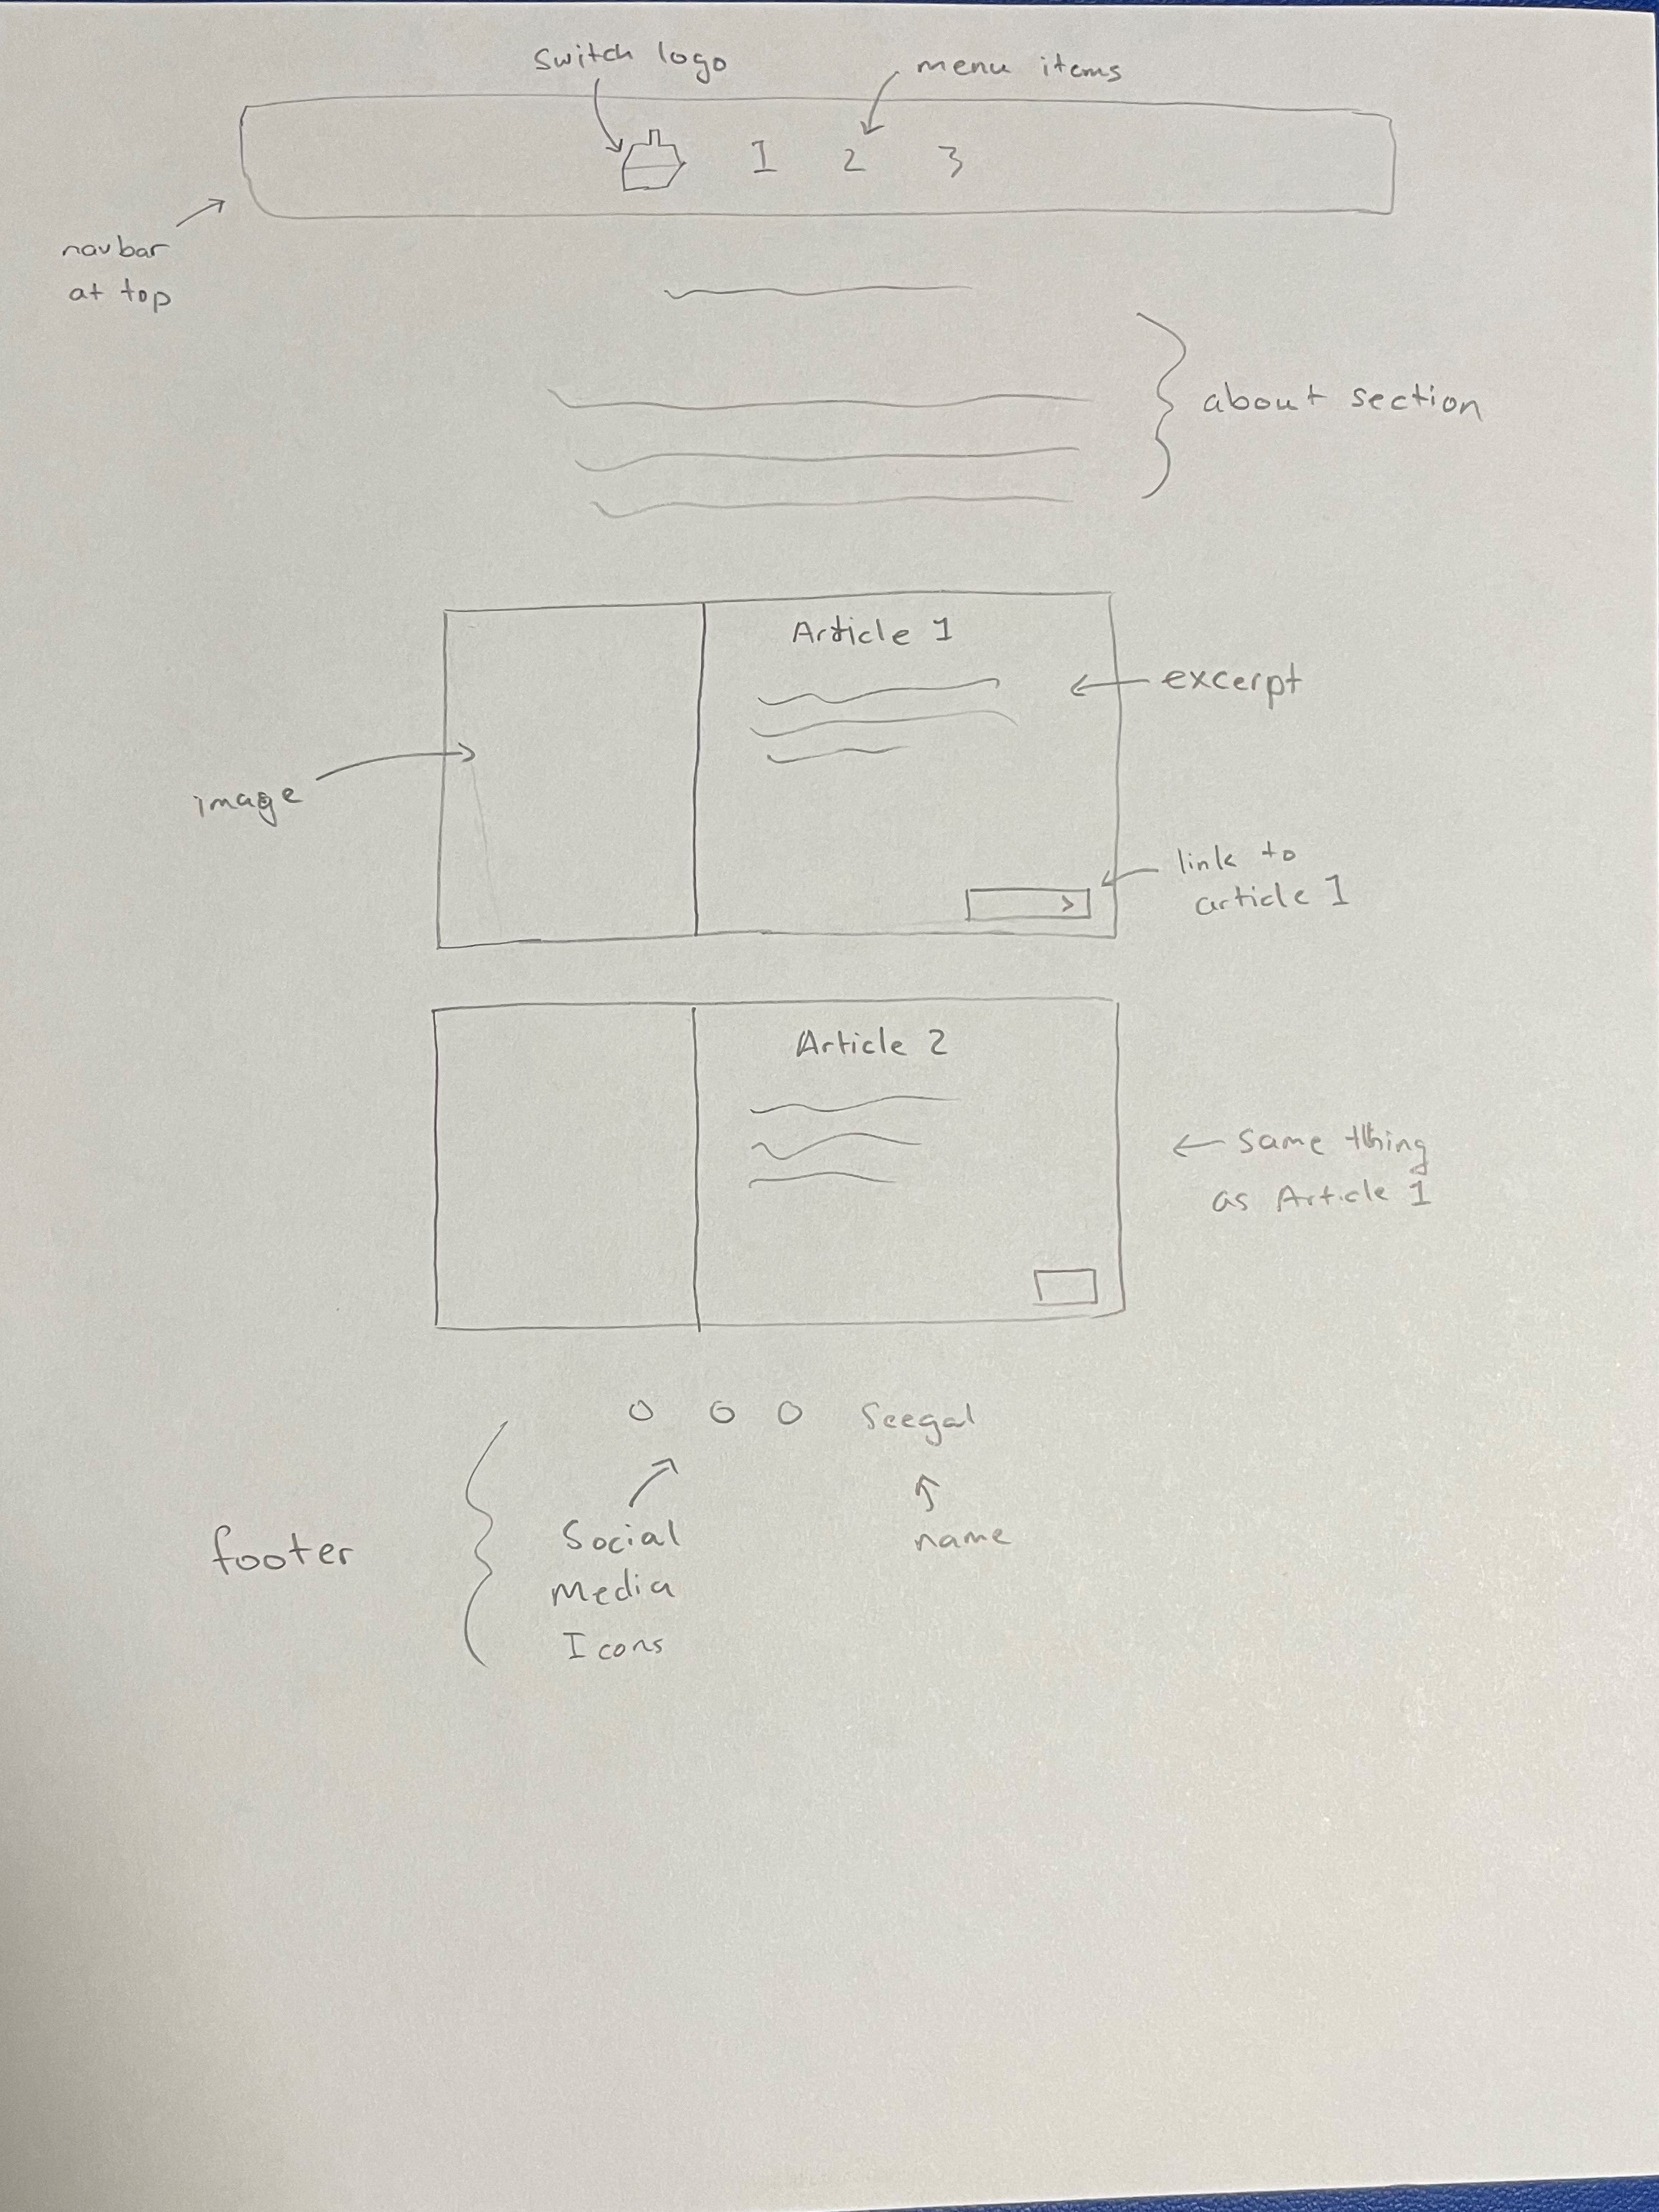 switch logo
menu items
1 2 3
navbar
at top
about section
Article 1
excerpt
image
link to
article 1
>
Article 2
same thing
as Article 1
Seegal
footer
Social
Media
Icons
name